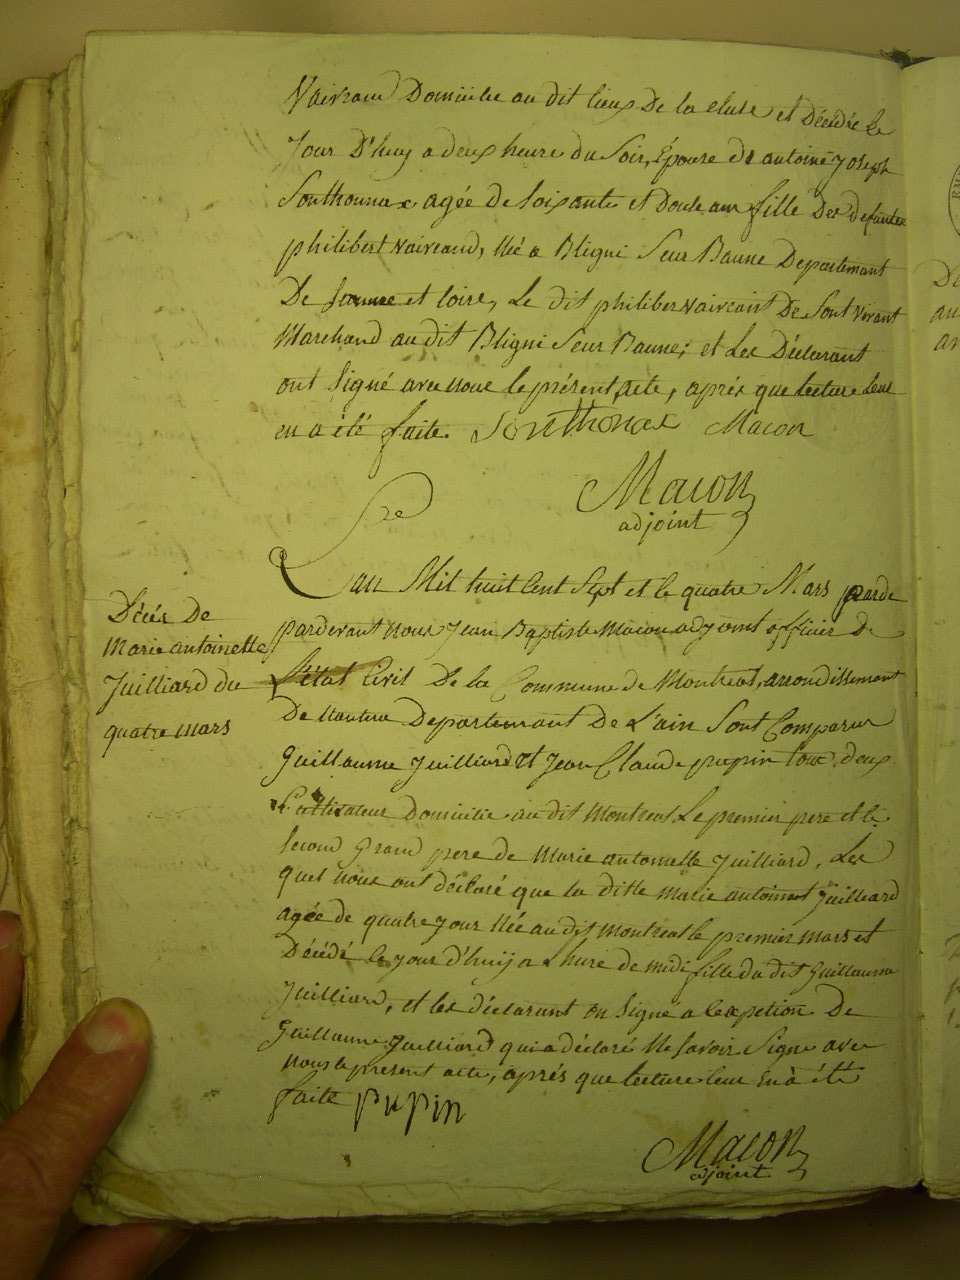 Vaivrand Domicilie au dit lieux De la cluse et Décédé le
Jour D'huy a deux heure du Soir, Epouse de antoine Joseph
Sonthounax, agée de soixante et Douse ans fille Des defuntes
philibert vaivrand, Née a Bligni Seur Baune Departemant
De et loire, Le dit philiber vaivrant De Sont vivant
Marchand au dit Bligni Seur Baune; et Les Déclarant
ont Signé avec nous le présent acte, après que lecture leur
en a été faite. Sonthonax Macon
Macon
adjoint
Lan Mil huit Cent Sept et le quatre Mars parde
Décés De
Marie antoinette
Juilliard du
quatre mars
pardevant nous Jean Baptiste Macon adjoint officier de
L'état Civil De la Commune de Montreal, arrondissement
De nantua Departemant De L'ain Sont Comparus
Guillaume Juilliard et Jean Claude pupin tous deux
Cultivateur Domicilie au dit Montreal Le premier pere et le
Second Grand pere de Marie antoinette Juilliard, Les
quel nous ont déclaré que la ditte Marie antoinet Juilliard
agée de quatre jour Née au dit Montreal le premier Mars et
Décédé le jour d'huij a Lhure de midi fille du dit Guillaume
Juilliard, et les déclarant on Signé a lexsption De
Guillaume Juilliard qui a déclaré Ne Savoir Signe avec
nous le present acte, aprés que lecture leur En a été
faite pupin
Macon
adjoint